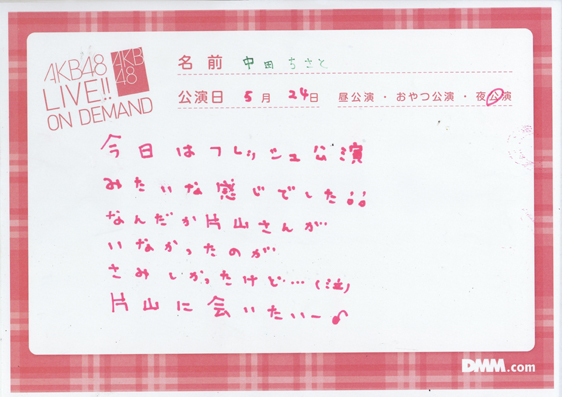 AKB48
LIVE!!
ON DEMAND
AKB
48
名前 中田ちさと
公演日 5月 24日 昼公演・おやつ公演・夜公演
今日はフレッシュ公演
みたいな感じでした!!
なんだか片山さんが
いなかったのが
さみしかったけど…(泣)
片山に会いたいー♪
DMM.com